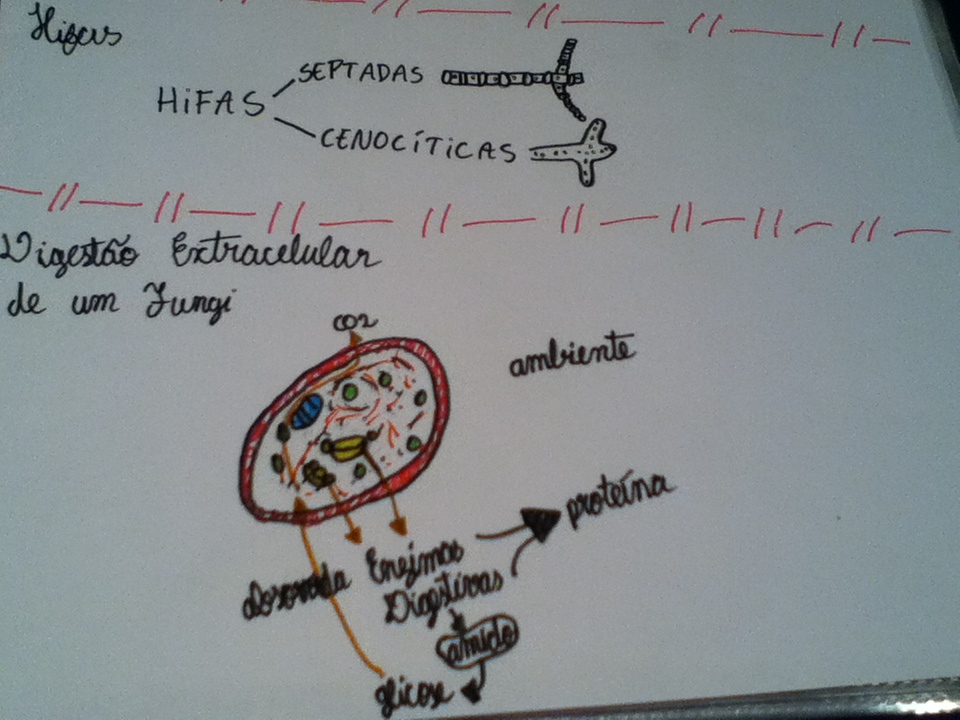 Hifas
HiFAS
SEPTADAS
CENOCÍTICAS
Digestão Extracelular
de um Fungi
CO2
ambiente
proteína
Enzimas
Digestivas
amido
glicose